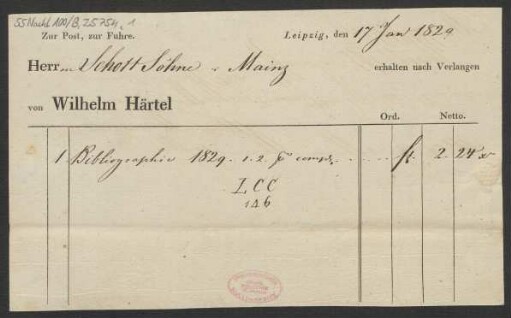 55 Nachl 100/B, 25754, 1
Zur Post, zur Fuhre. Leipzig, den 17 Jan 1829
Herren Schott Söhne Mainz erhalten nach Verlangen
von Wilhelm Härtel
Ord. Netto.
1 Bibliographie 1829. 1. 2. compl. fl. 2. 24 xr
LCC